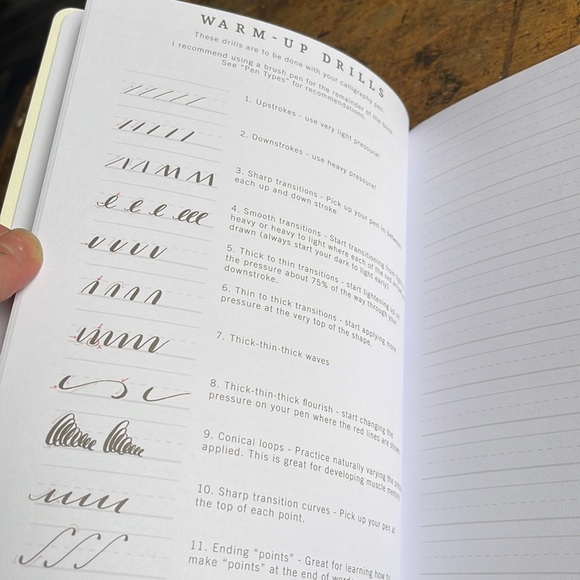 WARM-UP DRILLS
These drills are to be done with your calligraphy pen.
I recommend using a brush pen for the remainder of the book.
See "Pen Types" for recommendations.
1. Upstrokes - use very light pressure!
2. Downstrokes - use heavy pressure!
3. Sharp transitions - Pick up your pen in between
each up and down stroke
4. Smooth transitions - Start transitioning from light to
heavy or heavy to light where each of the red
drawn (always start your dark to light early)
5. Thick to thin transitions - start lightening up on
the pressure about 75% of the way through your
downstroke.
6. Thin to thick transitions - start applying more
pressure at the very top of the shape.
7. Thick-thin-thick waves
8. Thick-thin-thick flourish - start changing the
pressure on your pen where the red lines are
9. Conical loops - Practice naturally varying the
applied. This is great for developing muscle memory
10. Sharp transition curves - Pick up your pen at
the top of each point.
11. Ending "points" - Great for learning how to
make "points" at the end of